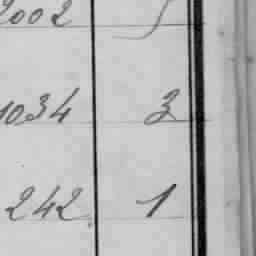 2002
1034 3
242 1